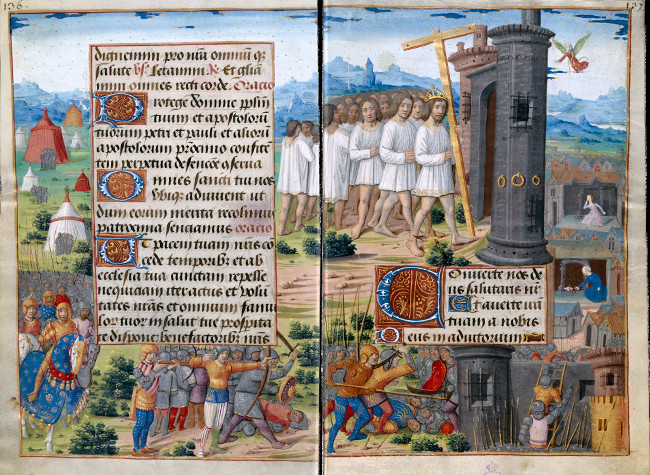 136.
digneminj pro nr̄a omniū qꝫ
salute v̄s. Letamini. R. Et glīa
mini omnes recti corde. Oracio
Protege domine pplm̄
tuum et apostolorū
tuorum petri et pauli et alioru
apostolorum patrocinio confide
tem perpetua defencōe cōserua
Omnes sancti tui nos
vbiqꝫ adiuuent ut
dum eorum merita recolimus
patrocinia senciamus oracio
Et pacem tuam nr̄is con
cede temporibꝫ et ab
ecclesia tua cunctam repelle
nequiciam iter actus et volū
tates nr̄as et omnium famu
lor tuor in salut tue prosp̄ita
te dispon benefactoribꝫ nr̄is
137
Conuerte nos de
us salutaris nr̄
Et auerte irā
tuam a nobis
Deus in adiutorium